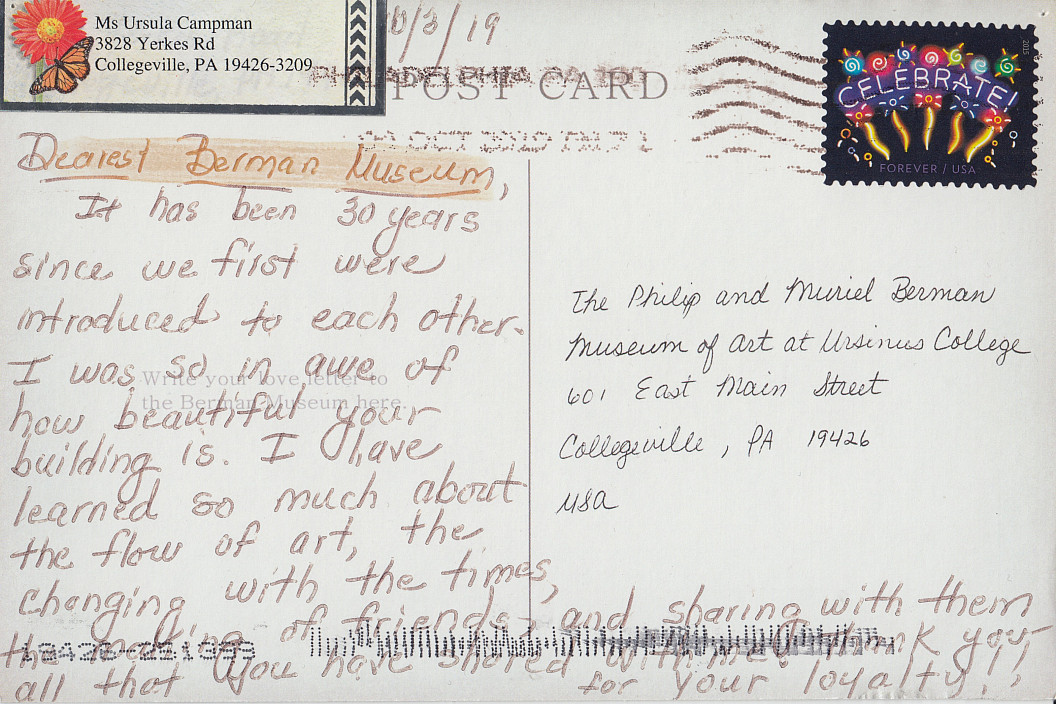 Ms Ursula Campman
3828 Yerkes Rd
Collegeville, PA 19426-3209
10/3/19
PHILADELPHIA PA
POST CARD
CELEBRATE!
FOREVER / USA
2015
Dearest Berman Museum,
It has been 30 years
since we first were
introduced to each other.
I was so in awe of
how beautiful your
building is. I have
learned so much about
the flow of art, the
changing with the times,
the making of friends, and sharing with them
all that you have shared with me. Thank you
for your loyalty!!
Write your love letter to
the Berman Museum here
The Philip and Muriel Berman
Museum of Art at Ursinus College
601 East Main Street
Collegeville, PA 19426
USA